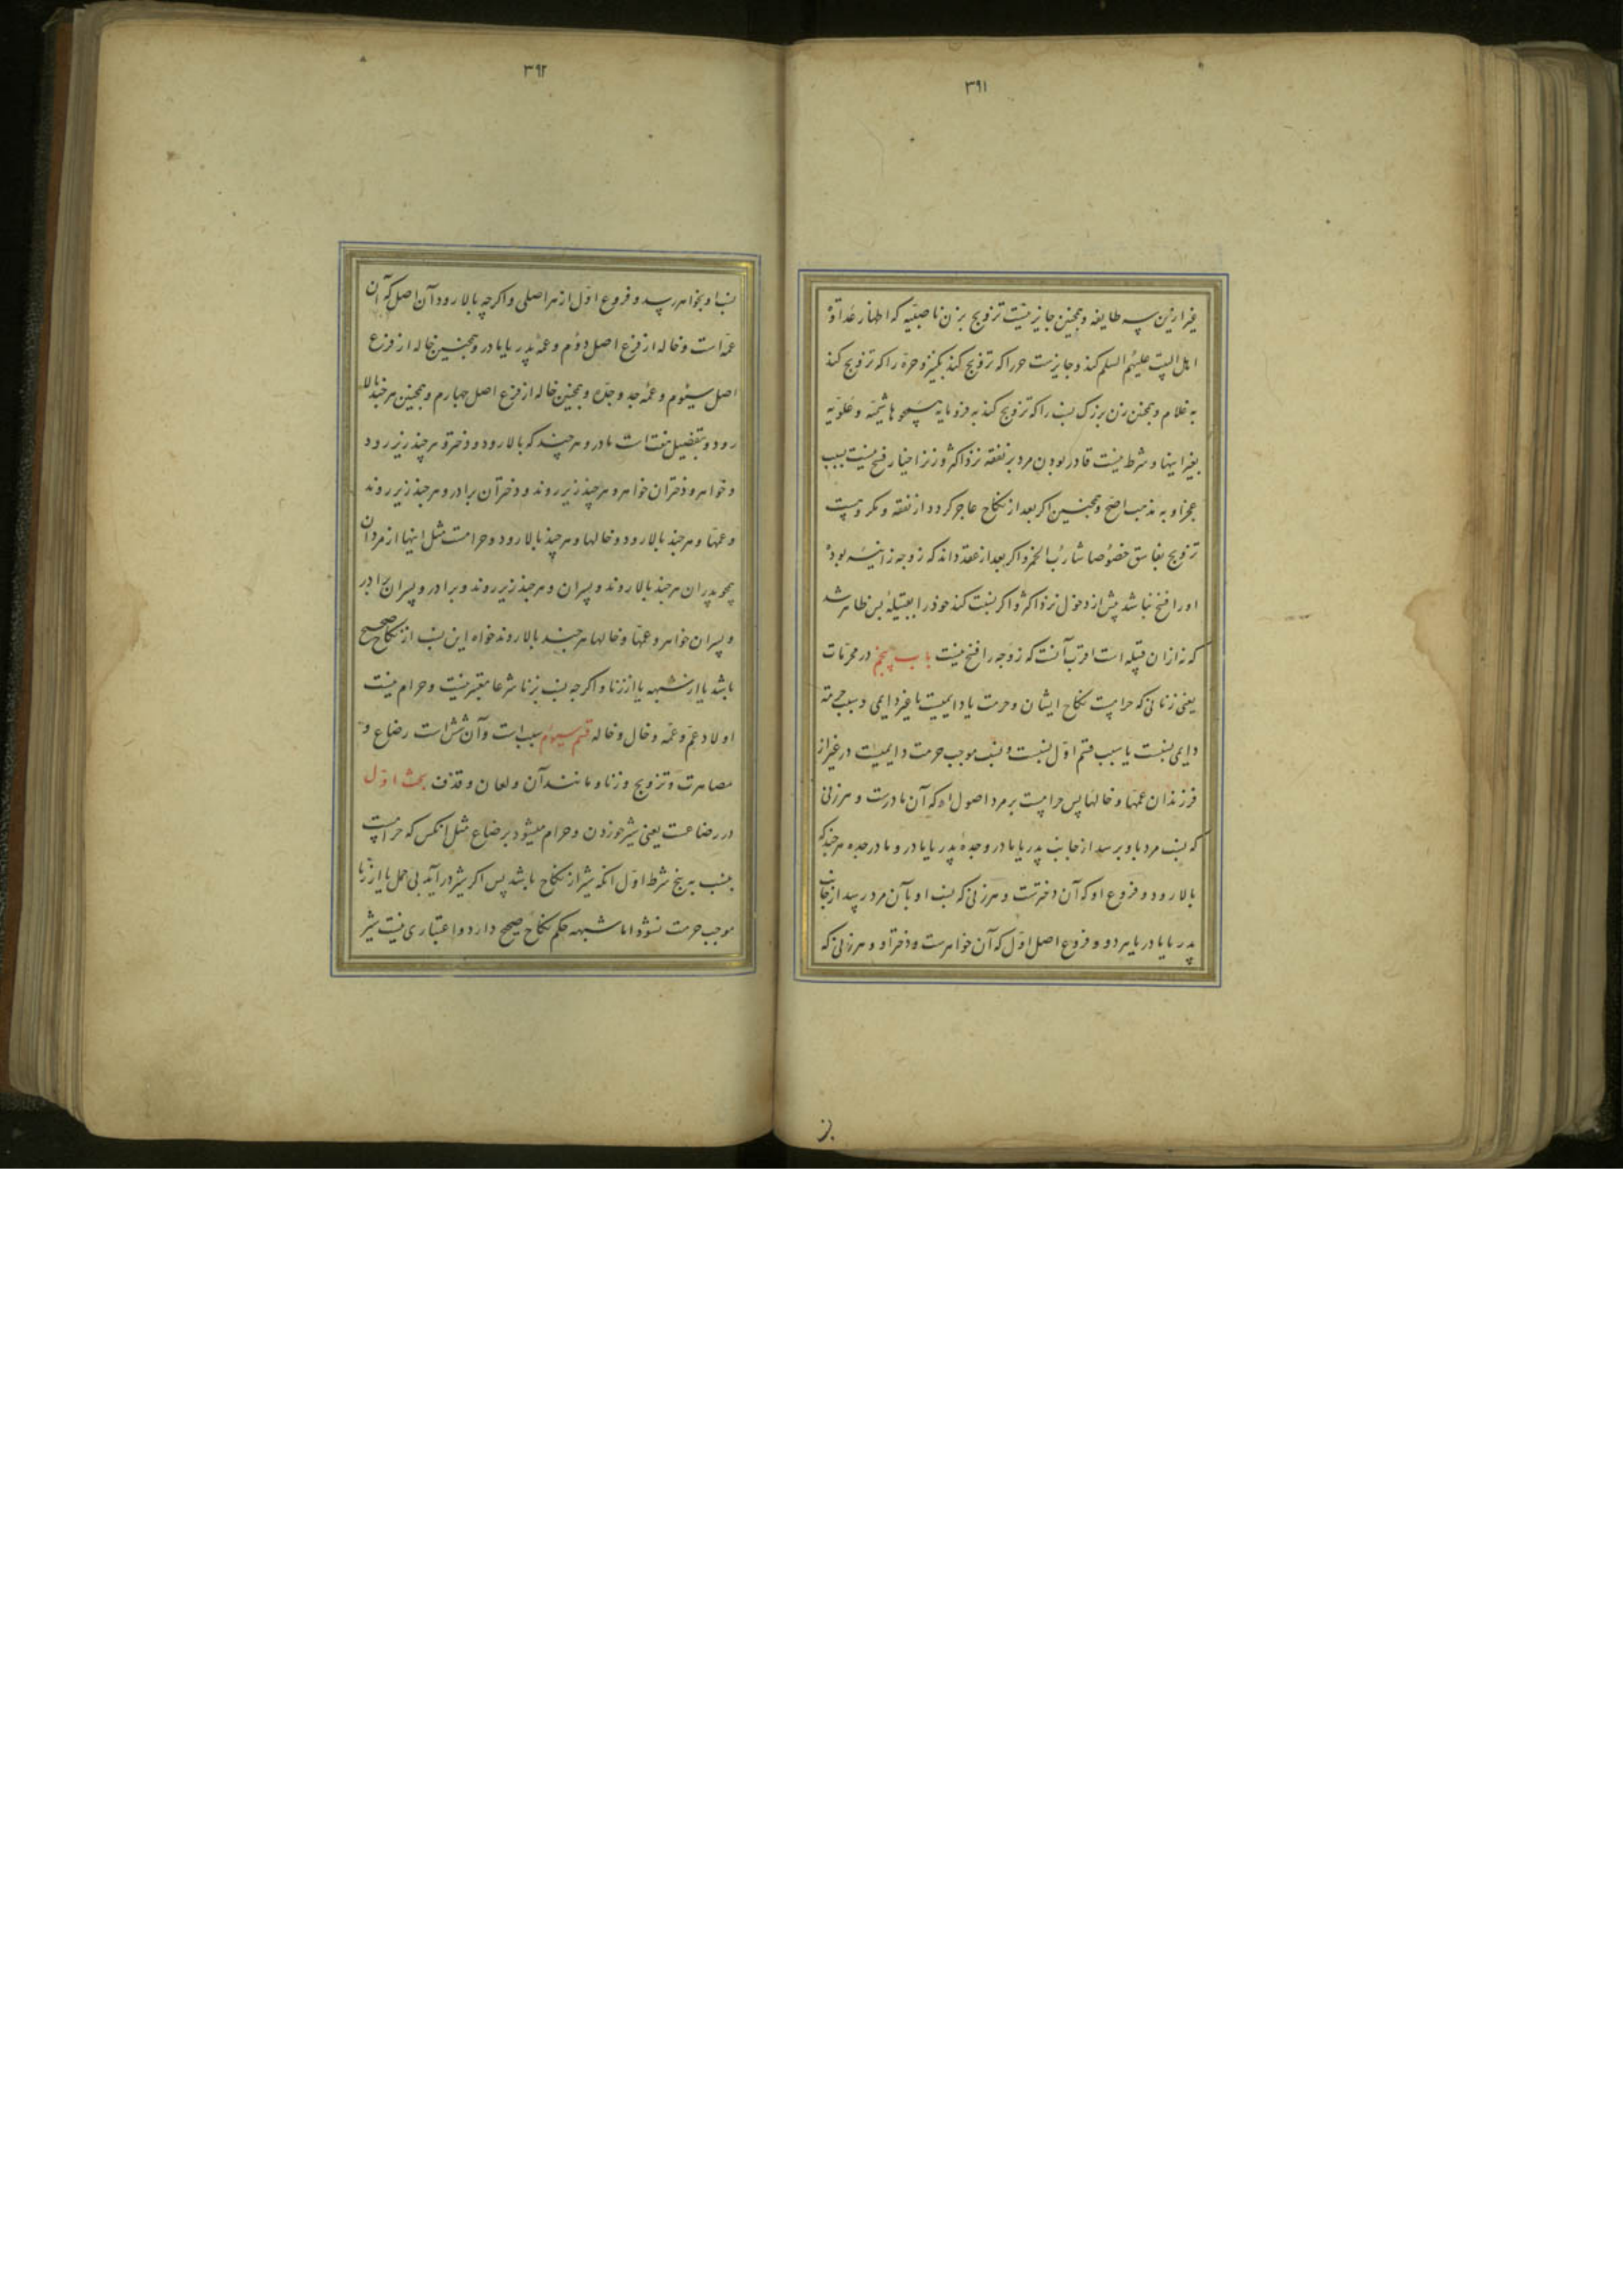 ۳۹۱
غیر ازین سه طایفه و همچنین جایز نیست تزویج بزن ناصبیه که اظهار عداوة
اهل البیت علیهم السلم کند و جایزست حر را که تزویج کند بکنیز و حره را که تزویج کند
به غلام و همچنین زن بزرک نسب را که تزویج کند به فرومایه همچو هاشمیه و علویه
بغیر اینها و شرط نیست قادر بودن مرد بر نفقه نزد اکثر و زنرا اختیار فسخ نیست بسبب
عجز او به مذهب اصح و همچنین اکر بعد از نکاح عاجز کردد از نفقه و مکروهست
تزویج بفاسق خصوصا شارب الخمر و اکر بعد از عقد داند که زوجه زانیه بوده
او را فسخ نباشد پیش از دخول نزد اکثر و اکر نسبت کند خود را بقبیله پس ظاهر شد
که نه از ان قبیله است اقرب آنست که زوجه را فسخ نیست باب پنجم در محرمات
یعنی زنانی که حرامست نکاح ایشان و حرمت یا دایمیست یا غیر دایمی و سبب حرمة
دایمی نسبت یا سبب قسم اول نسبت و نسب موجب حرمت دایمیست در غیر از
فرزندان عمها و خالها پس حرامست بر مرد اصول او که آن مادرست و هر زنی
که نسب مرد باو برسد از جانب پدر یا مادر و جده پدر یا مادر و مادر جده هر چند که
بالا رود و فروع او که آن دخترست و هر زنی که نسب او بآن مرد رسد از جانب
پدر یا مادر یا هر دو و فروع اصل اول که آن خواهرست و دختر او و هر زنی که
۳۹۲
نسب او بخواهر رسد و فروع اول از هر اصلی و اکر چه بالا رود آن اصل که آن
عمه است و خاله از فرع اصل دوم و عمه پدر یا مادر و همچنین خاله از فرع
اصل سیوم و عمه جد و جده و همچنین خاله از فرع اصل چهارم و همچنین هر چند بالا
رود و بتفصیل هفت است مادر و هر چند که بالا رود و دختر و هر چند زیر رود
و خواهر و دختران خواهر و هر چند زیر روند و دختران برادر و هر چند زیر روند
و عمها و هر چند بالا رود و خالها و هر چند بالا رود و حرامست مثل اینها از مردان
همچو پدران هر چند بالا روند و پسران و هر چند زیر روند و برادر و پسران برادر
و پسران خواهر و عمها و خالها هر چند بالا روند خواه این نسب از نکاح صحیح
باشد یا از شبهه یا از زنا و اکر چه نسب بزنا شرعا معتبر نیست و حرام نیست
اولاد عم و عمه و خال و خاله قسم سیوم سبب است و آن شش است رضاع و
مصاهرت و تزویج و زنا و مانند آن و لعان و قذف بحث اول
در رضاعست یعنی شیر خوردن و حرام میشود برضاع مثل انکس که حرامست
بنسب به پنج شرط اول انکه شیر از نکاح باشد پس اکر شیر در آید بی حمل یا از زنا
موجب حرمت نشود اما شبهه حکم نکاح صحیح دارد و اعتباری نیست شیر